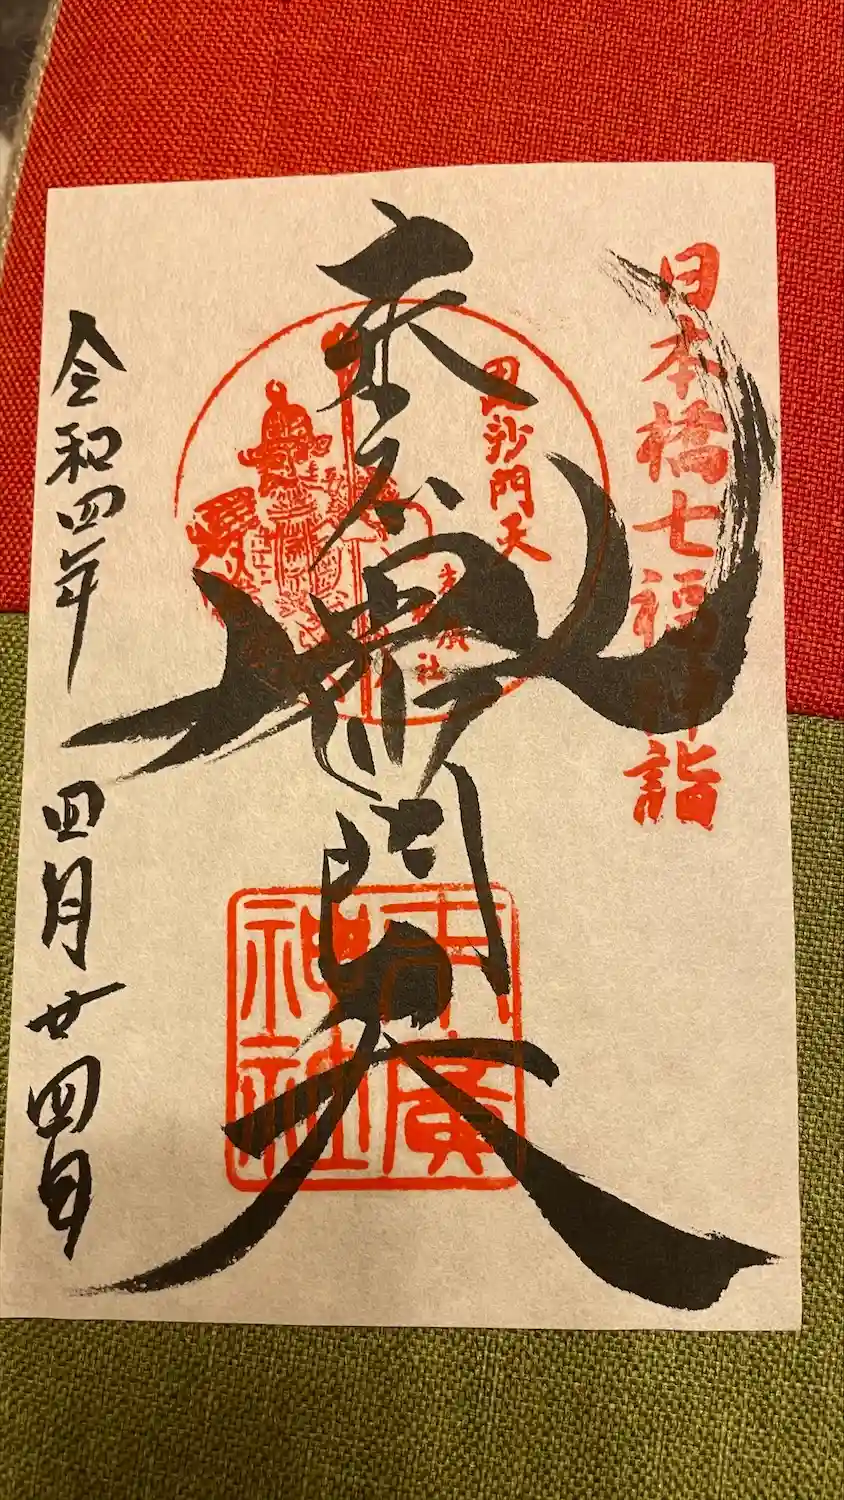 日本橋七福神詣
毘沙門天
毘沙門天
末廣
神社
令和四年
四月廿四日